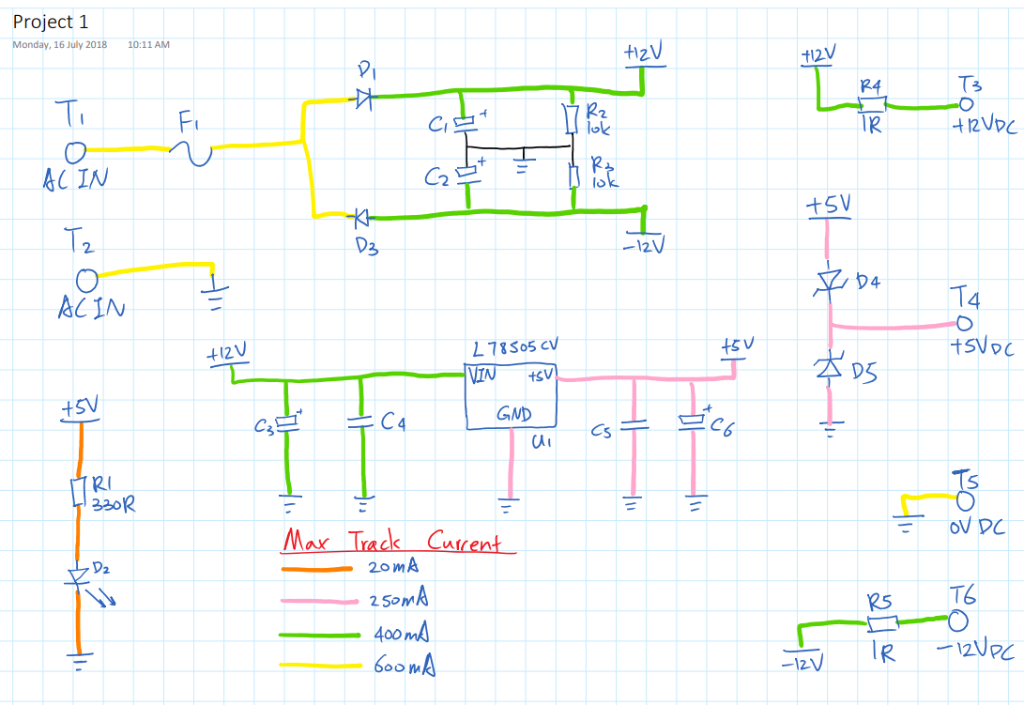 Project 1
Monday, 16 July 2018 10:11 AM
T1
AC IN
F1
D1
+12V
C1 +
R2
10k
C2 +
R3
10k
D3
-12V
+12V
R4
1R
T3
+12VDC
T2
AC IN
+5V
D4
T4
+5VDC
D5
+12V
L78S05CV
VIN +5V
GND
U1
+5V
C3 +
C4
C5
+ C6
+5V
R1
330R
D2
T5
0V DC
Max Track Current
20mA
250mA
400mA
600mA
-12V
R5
1R
T6
-12VDC